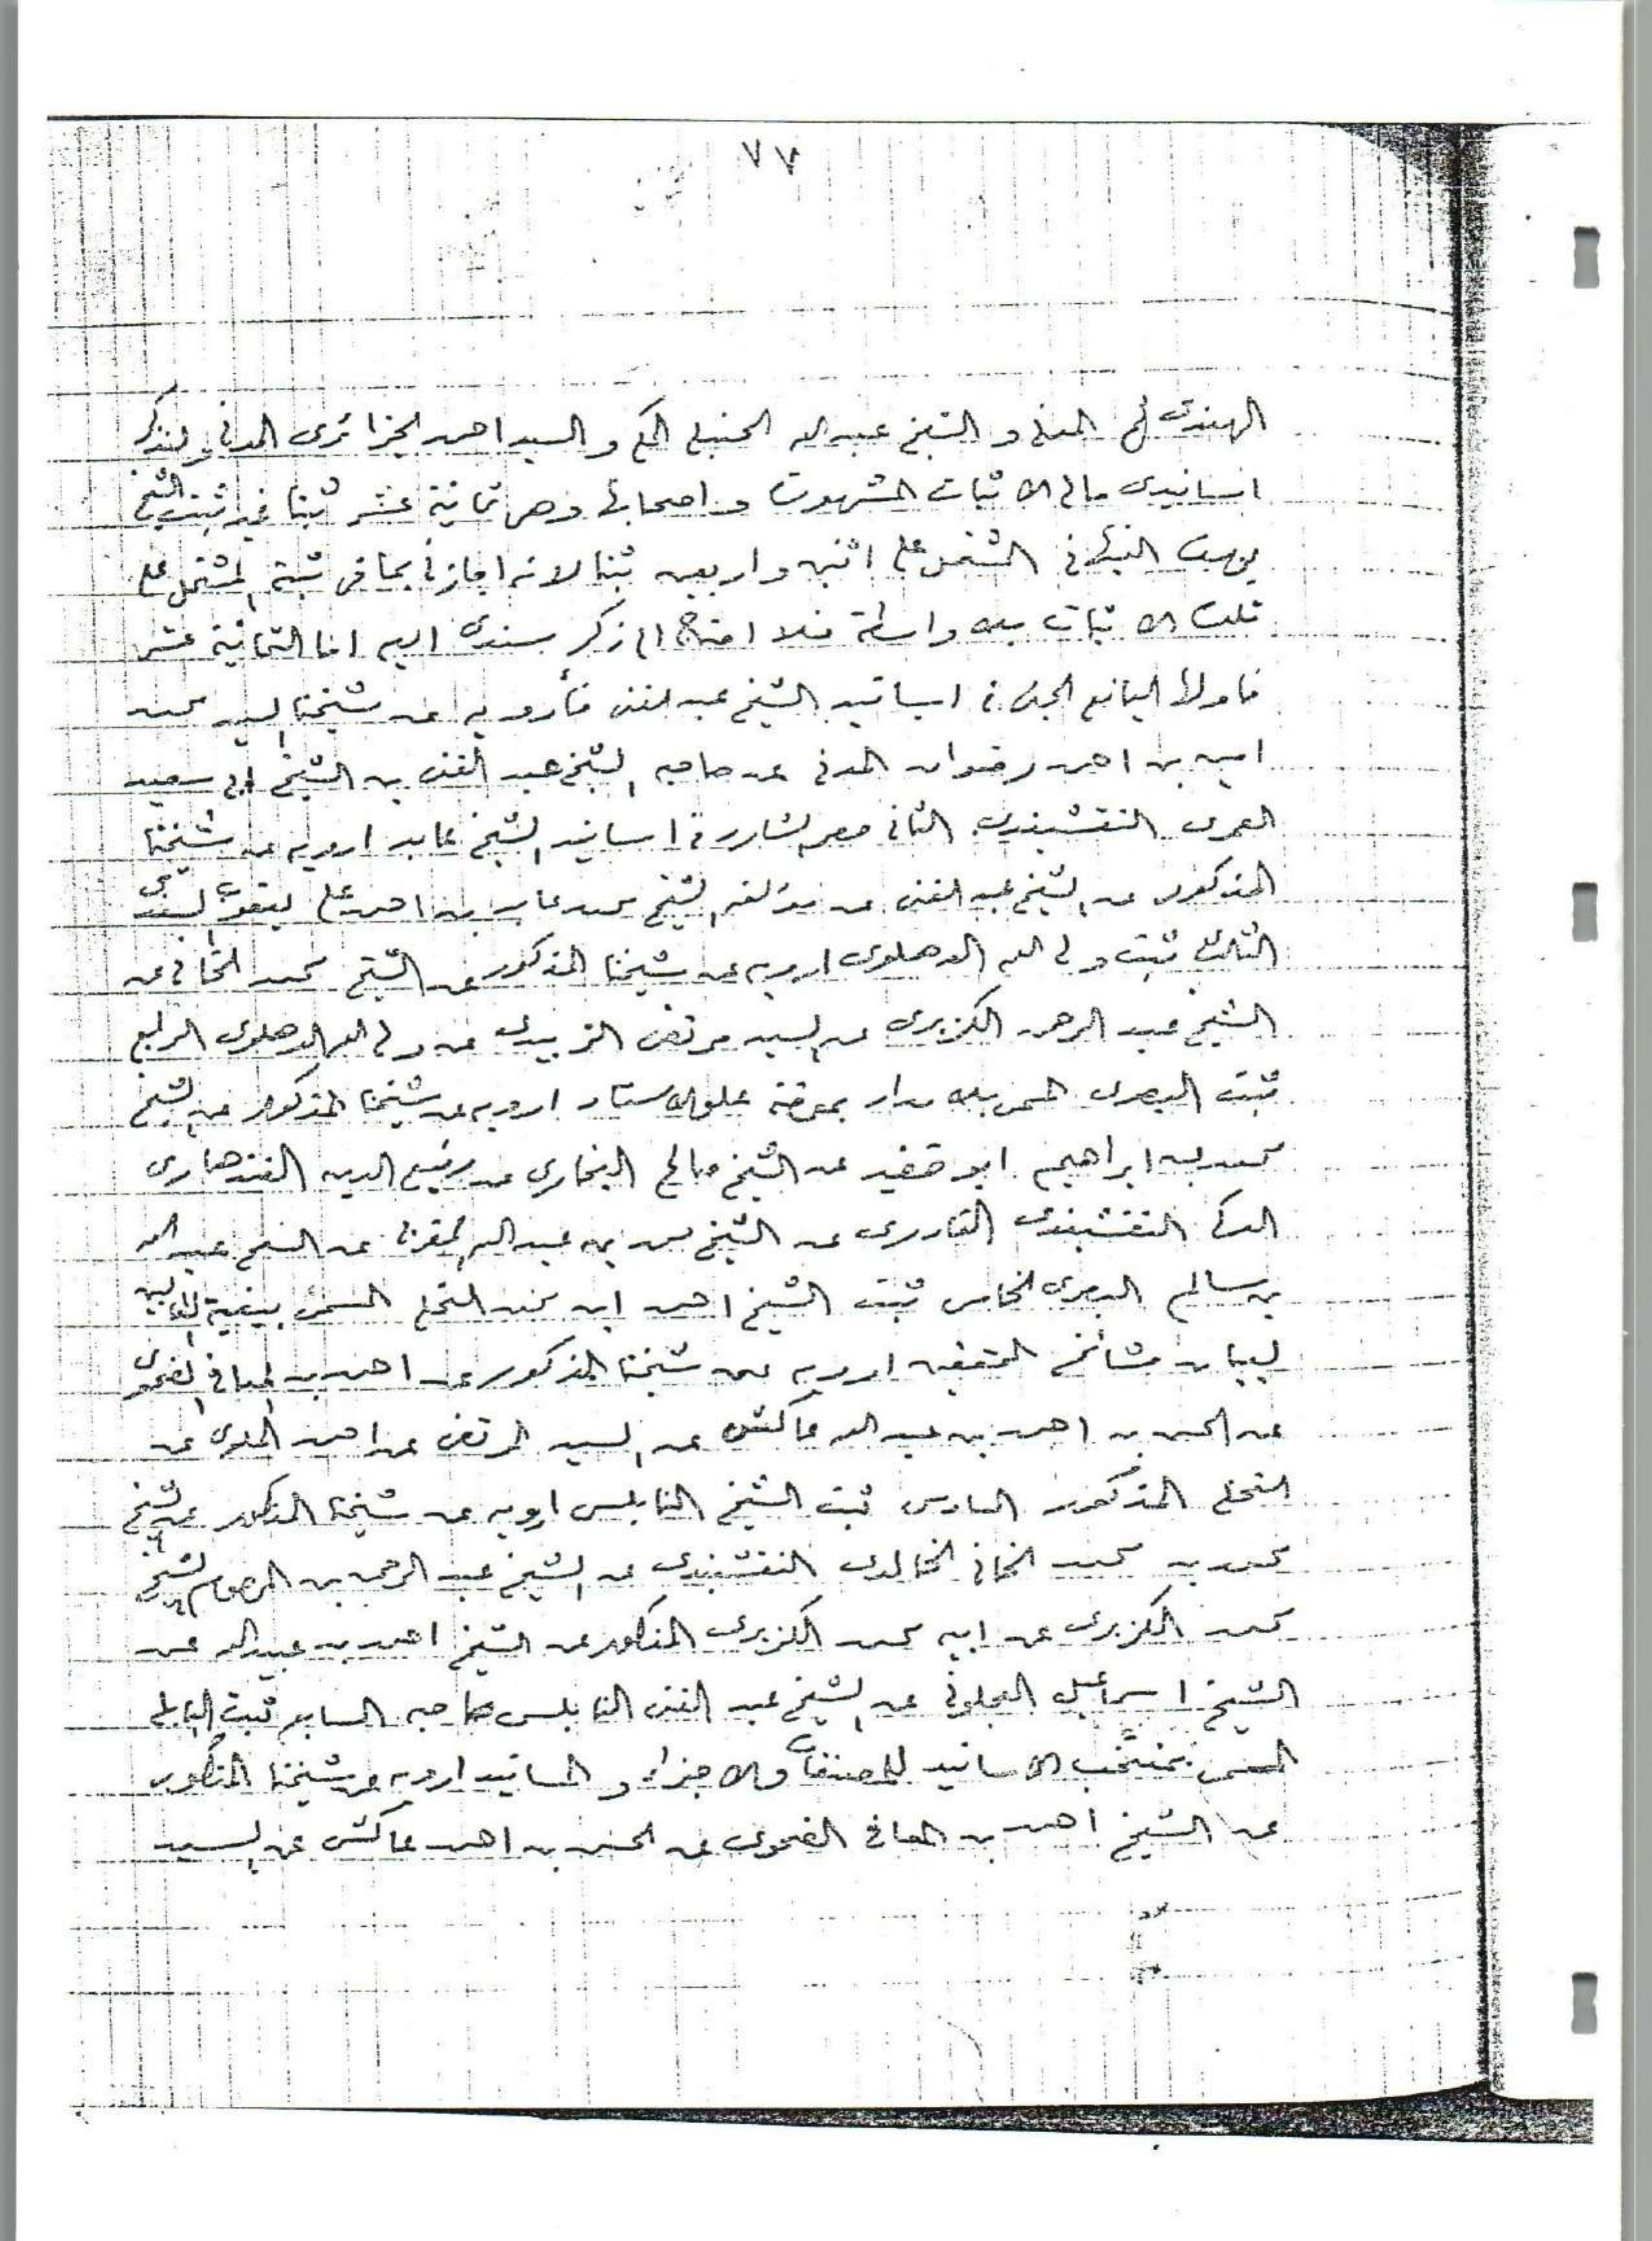 ٧٧
الهندي ثم المدني و الشيخ عبد الله الحنبلي المكي و السيد احمد الجزائري المدني ولنذكر
اسانيدي مالي الاثبات المشهورة و اصحابها وهي ثمانية عشر ثبتا غير ثبت الشيخ
يوسف النبهاني المشتمل على اثنين و اربعين ثبتا لانه اجازني بما في ثبته المشتمل على
تلك الاثبات بلا واسطة فلا احتاج الى ذكر سندي اليه اما الثمانية عشر
فاولها اليانع الجني في اسانيد الشيخ عبد الغني فأرويه عن شيخنا السيد محمد
امين بن احمد رضوان المدني عن صاحبه الشيخ عبد الغني بن الشيخ ابي سعيد
العمري النقشبندي الثاني حصر الشارد في اسانيد الشيخ عابد ارويه عن شيخنا
المذكور عن الشيخ عبد الغني عن مؤلفه الشيخ محمد عابد بن احمد علي يعقوب السندي
الثالث ثبت ولي الله الدهلوي ارويه عن شيخنا المذكور عن الشيخ محمد الخاني عن
الشيخ عبد الرحمن الكزبري عن السيد مرتضى الزبيدي عن ولي الله الدهلوي الرابع
ثبت البصري المسمى بالامداد بمعرفة علو الاسناد ارويه عن شيخنا المذكور عن الشيخ
محمد بن ابراهيم ابو خضير عن الشيخ صالح البخاري عن رفيع الدين القندهاري
الدكني النقشبندي القادري عن الشيخ محمد بن عبد الله المغربي عن الشيخ عبد الله
بن سالم البصري الخامس ثبت الشيخ احمد ابن محمد النخلي المسمى ببغية الطالبين
لبيان مشائخ المحققين ارويه عن شيخنا المذكور عن احمد بن المعافى الضحوي
عن الحسن بن احمد بن عبد الله عاكش عن السيد المرتضى عن احمد الملوي عن
النخلي المذكور السادس ثبت الشيخ النابلسي ارويه عن شيخنا المذكور عن الشيخ
محمد بن محمد الخاني الخالدي النقشبندي عن الشيخ عبد الرحمن بن المرحوم الشيخ
محمد الكزبري عن ابيه محمد الكزبري المذكور عن الشيخ احمد بن عبيد الله عن
الشيخ اسماعيل العجلوني عن الشيخ عبد الغني النابلسي صاحبه السابع ثبت البابلي
المسمى بمنتخب الاسانيد للمصنفات والاجزاء و المسانيد ارويه عن شيخنا المذكور
عن الشيخ احمد بن المعافى الضحوي عن الحسن بن احمد عاكش عن السيد